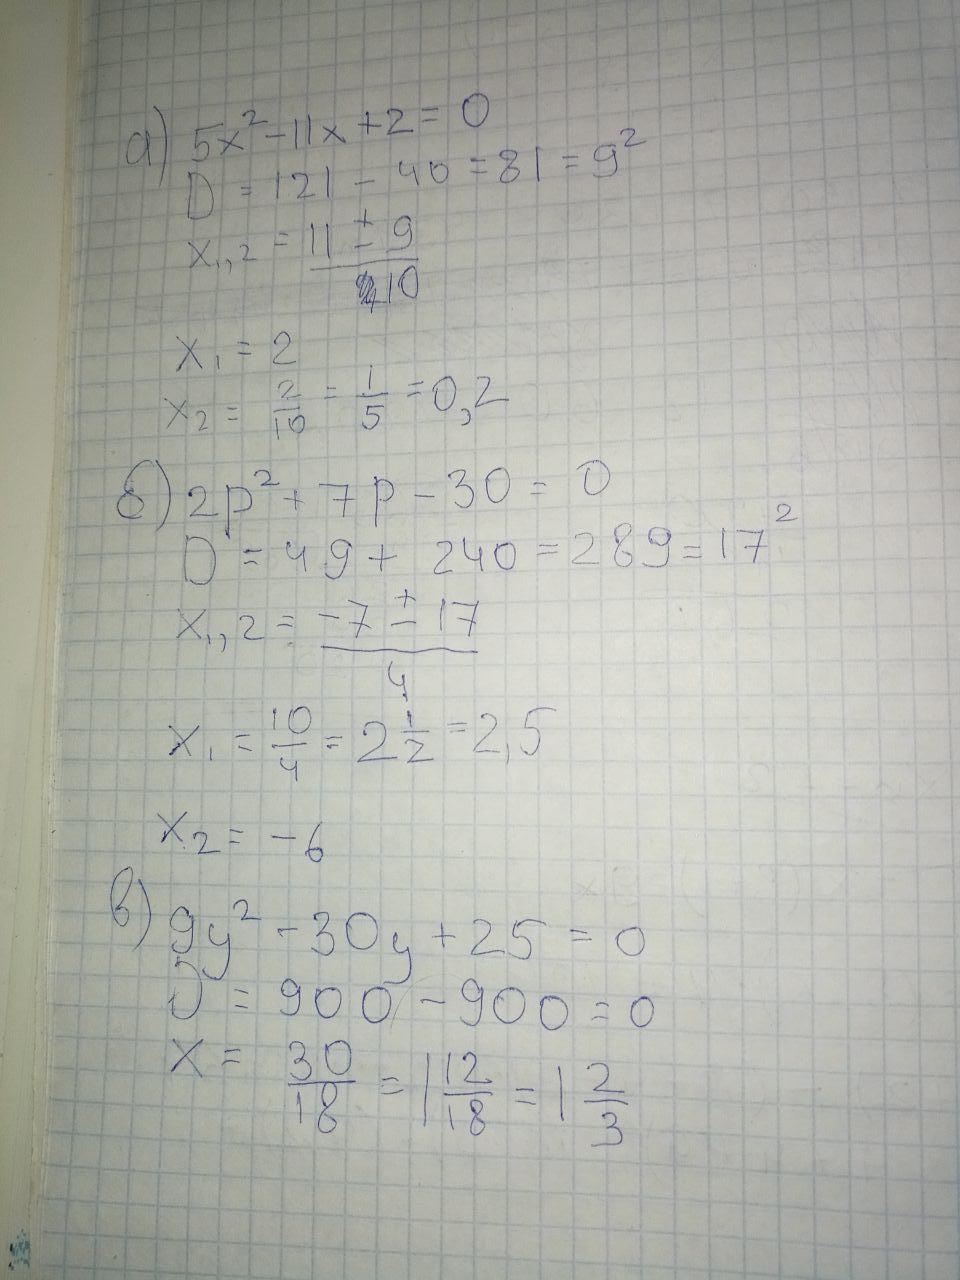 а) 5x² - 11x + 2 = 0
D = 121 - 40 = 81 = 9²
x₁,₂ = (11 ± 9)/10
x₁ = 2
x₂ = 2/10 = 1/5 = 0,2
б) 2p² + 7p - 30 = 0
D = 49 + 240 = 289 = 17²
x₁,₂ = (-7 ± 17)/4
x₁ = 10/4 = 2 1/2 = 2,5
x₂ = -6
в) 9y² - 30y + 25 = 0
D = 900 - 900 = 0
x = 30/18 = 1 12/18 = 1 2/3